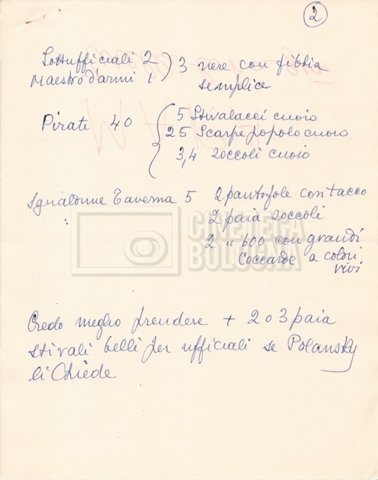 2
Sottufficiali 2 ) 3 nere con fibbia
Maestro d'armi 1 semplice
Pirati 40 { 5 Stivalacci cuoio
25 Scarpe popolo cuoio
3,4 zoccoli cuoio
Sgualdrine Taverna 5 2 pantofole con tacco
" 2 paia zoccoli
2 " 600 con grandi
coccarde a colori
vivi
CINETECA
BOLOGNA
Credo meglio prendere + 2 o 3 paia
stivali belli per ufficiali se Polansky
li chiede